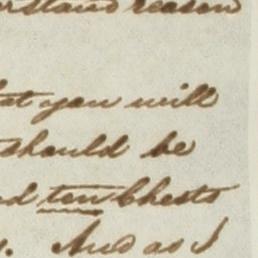 erstand reason
at you will
should be
d ten Chests
s. And as I